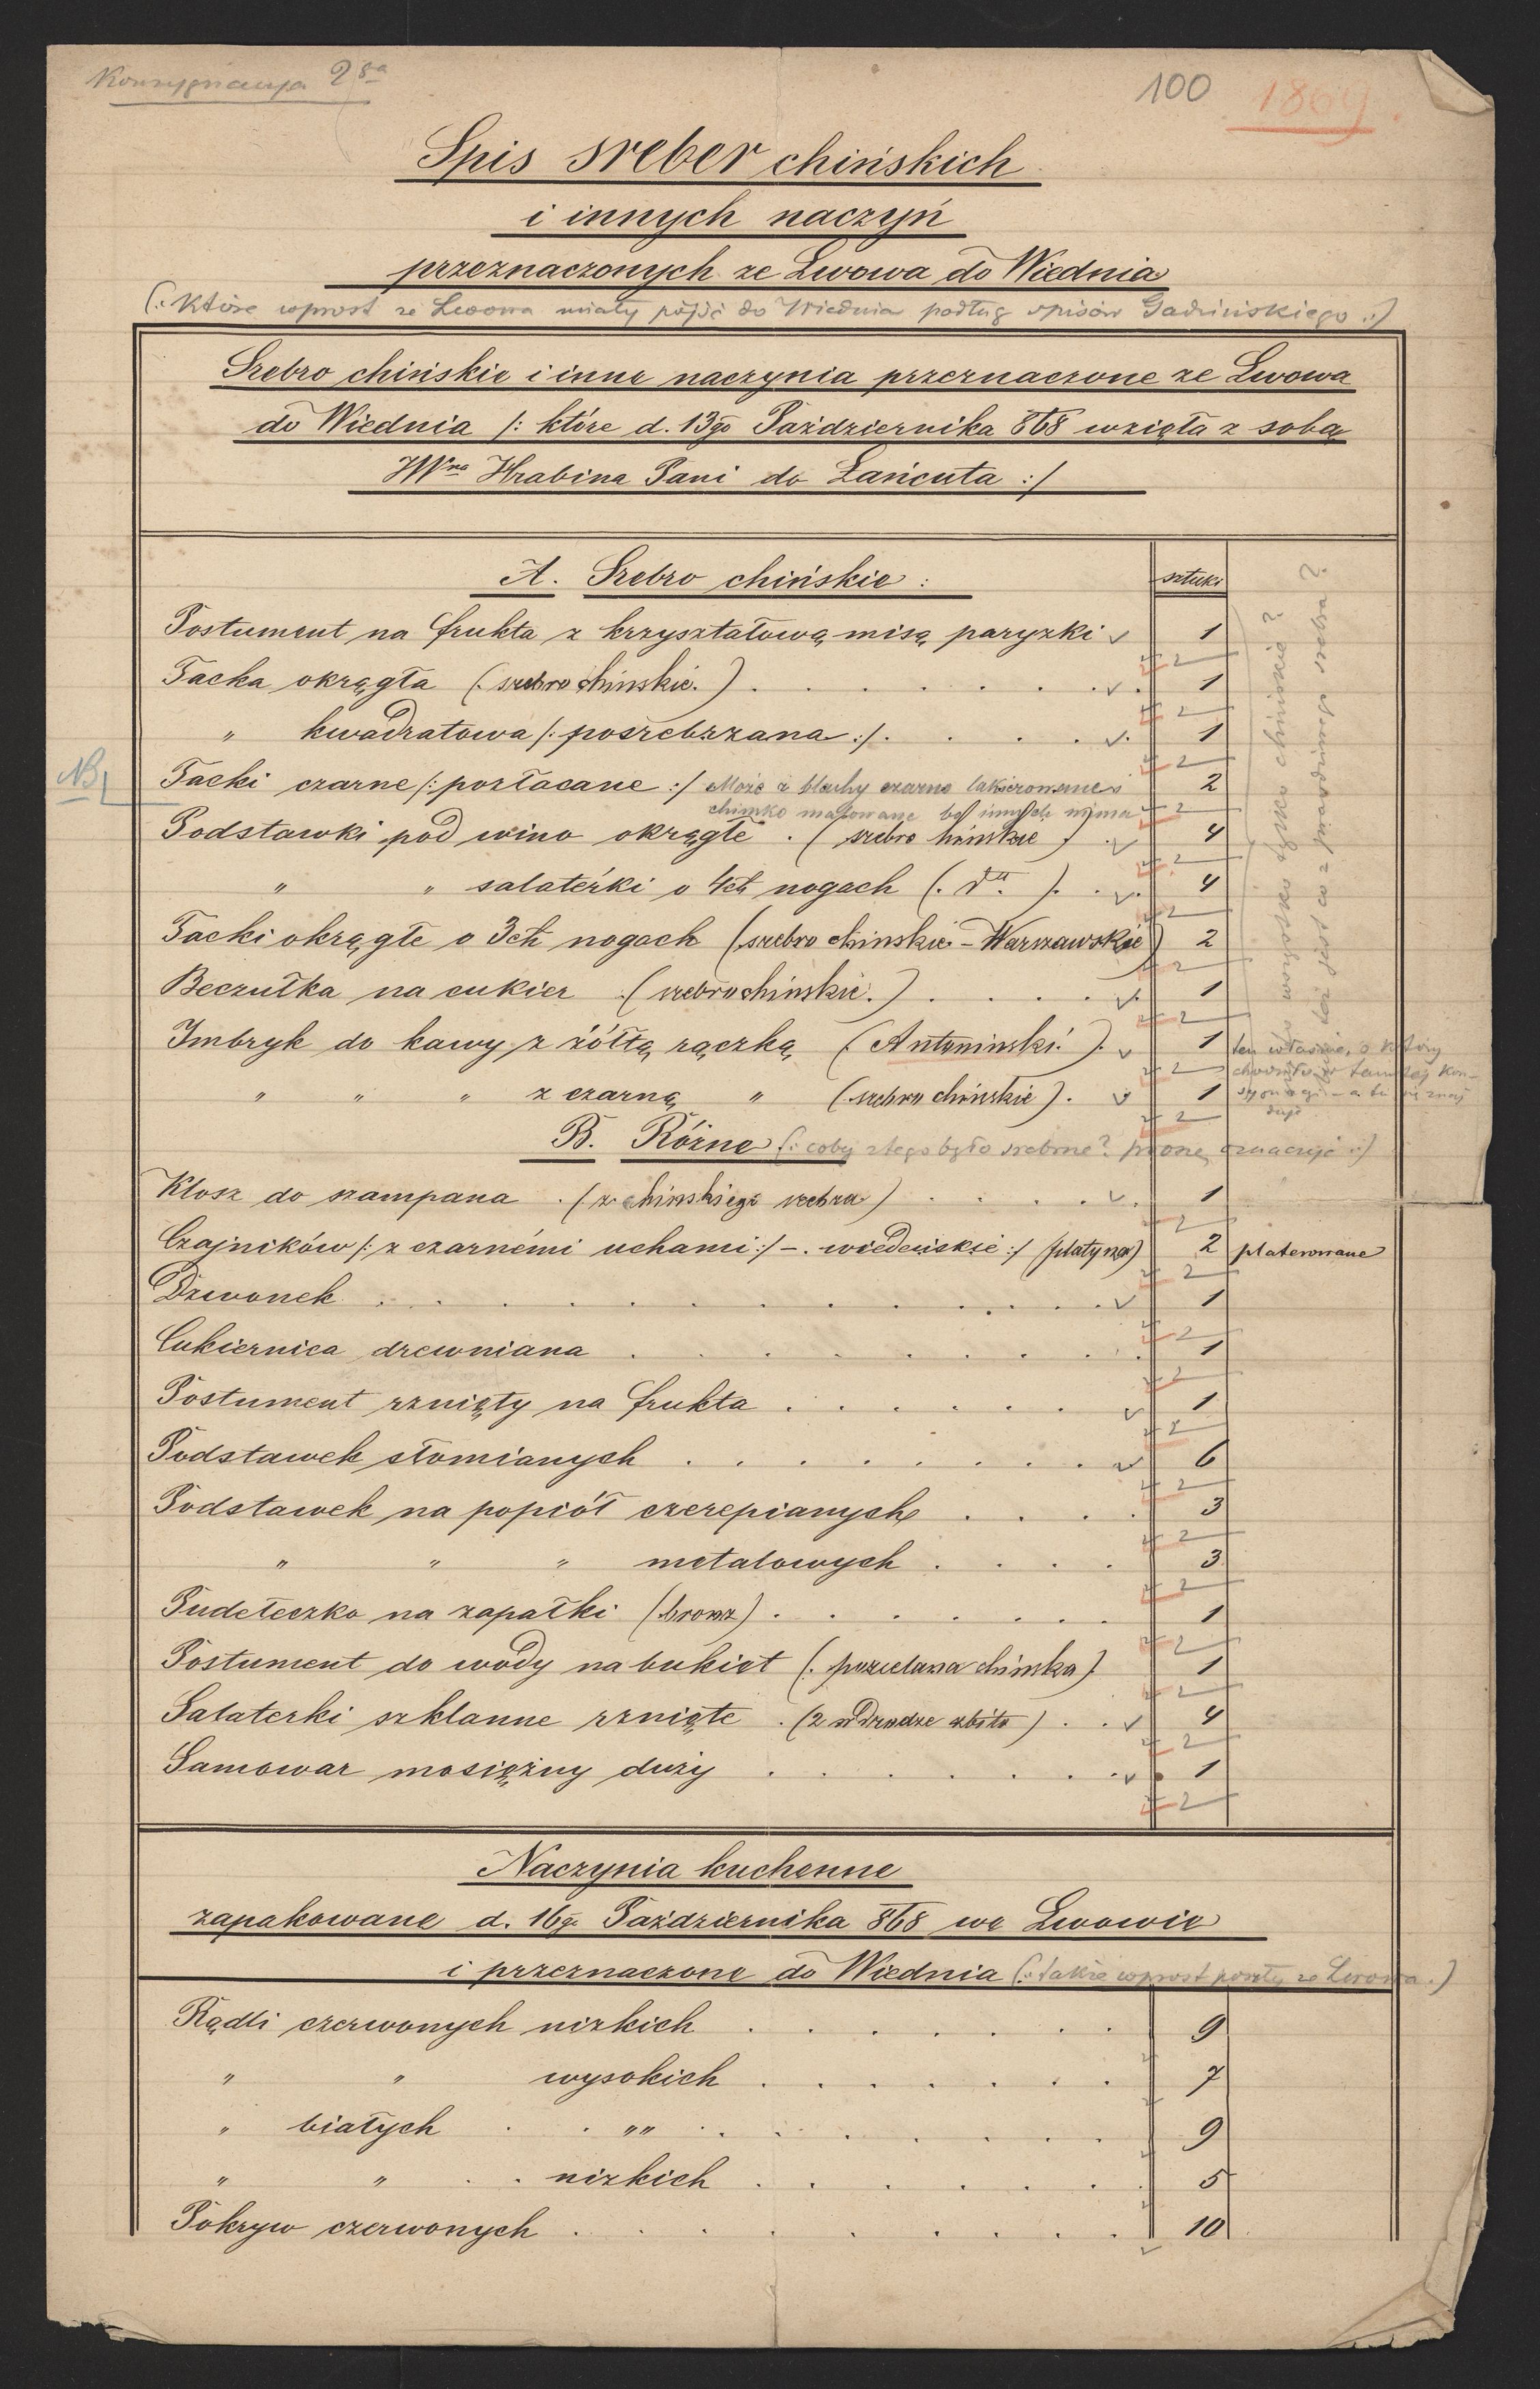 Konsygnacya 2ga
100 1869
Spis sreber chińskich
i innych naczyń
przeznaczonych ze Lwowa do Wiednia
(: Które wprost ze Lwowa miały pójść do Wiednia podług spisów Gadzińskiego :)
Srebro chińskie i inne naczynia przeznaczone ze Lwowa
do Wiednia /: które d. 13go Października 868 wzięła z sobą
JWna Hrabina Pani do Łańcuta :/
A. Srebro chińskie : sztuki
Postument na frukta z krzyształową misą paryzki 1
Tacka okrągła (. srebro chinskie.) 1
" kwadratowa /: posrebrzana :/ 1
NB
Tacki czarne /: pozłacane :/ Może z blachy czarno lakierowane i 2
chińsko malowane bo innych niema
Podstawki pod wino okrągłe . ( srebro chinskie ) 4
" " salaterki o 4ch nogach (. dto ). 4
Tacki okrągłe o 3ch nogach (srebro chinskie - Warszawskie) 2
Beczułka na cukier .( srebro chinskie.) 1
Imbryk do kawy z żółtą rączką (. Antoninski. ) 1 ten właśnie, o który
chodziło w tamtej kon-
" " " z czarną " (. srebro chińskie ) . 1 sygnacyi - a tu się znaj
duje
B. Różne (: coby z tego było srebrne? proszę oznaczyć :)
Klosz do szampana . ( z chinskiego srebra ) 1
Czajników /: z czarnémi uchami :/ - . wiedeńskie :/ (platyna) 2 platerowane
Dzwonek 1
Cukiernica drewniana 1
Postument rznięty na frukta 1
Podstawek słomianych 6
Podstawek na popiół czerepianych 3
" " " metalowych 3
Pudełeczko na zapałki (bronz) 1
Postument do wody na bukiet (. porcelana chinska ) 1
Salaterki szklanne rznięte . (2 w drodze zbito ) 4
Samowar mosiężny duży 1
Naczynia kuchenne
zapakowane d. 16go Października 868 we Lwowie
i przeznaczone do Wiednia (: także wprost poszły ze Lwowa .)
Rądli czerwonych nizkich 9
" " wysokich 7
" białych " " 9
" " nizkich 5
Pokryw czerwonych 10